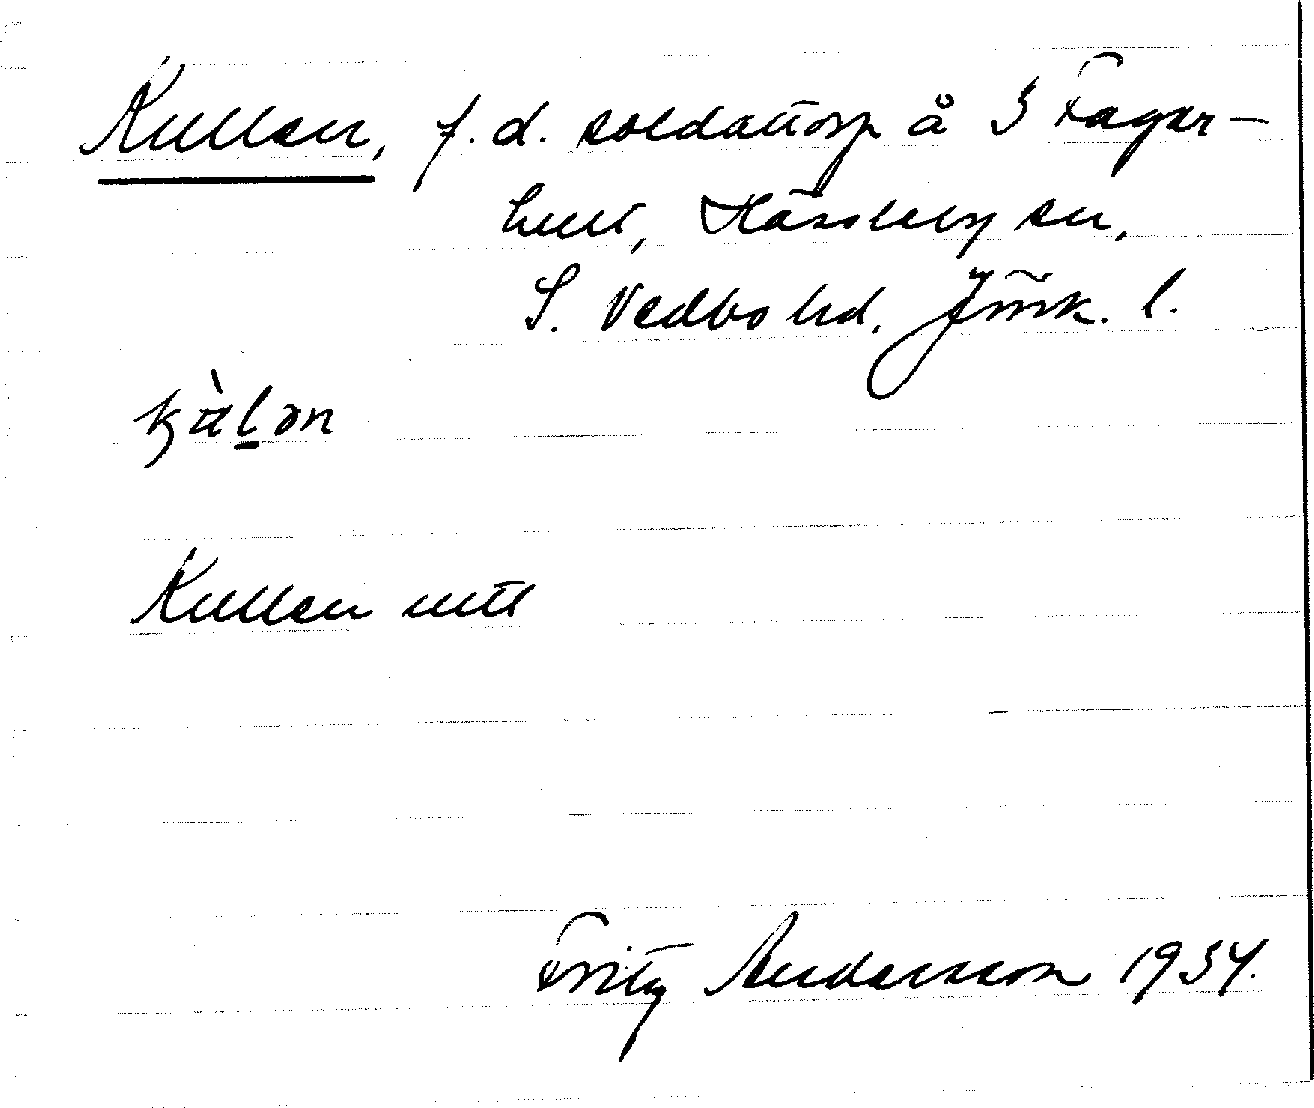 Kullen, f.d. soldattorp å S Fager-
hult, Hässleby sn,
S. Vedbo hd, Jönk. l.
Kullen
Fritz Andersson 1934.